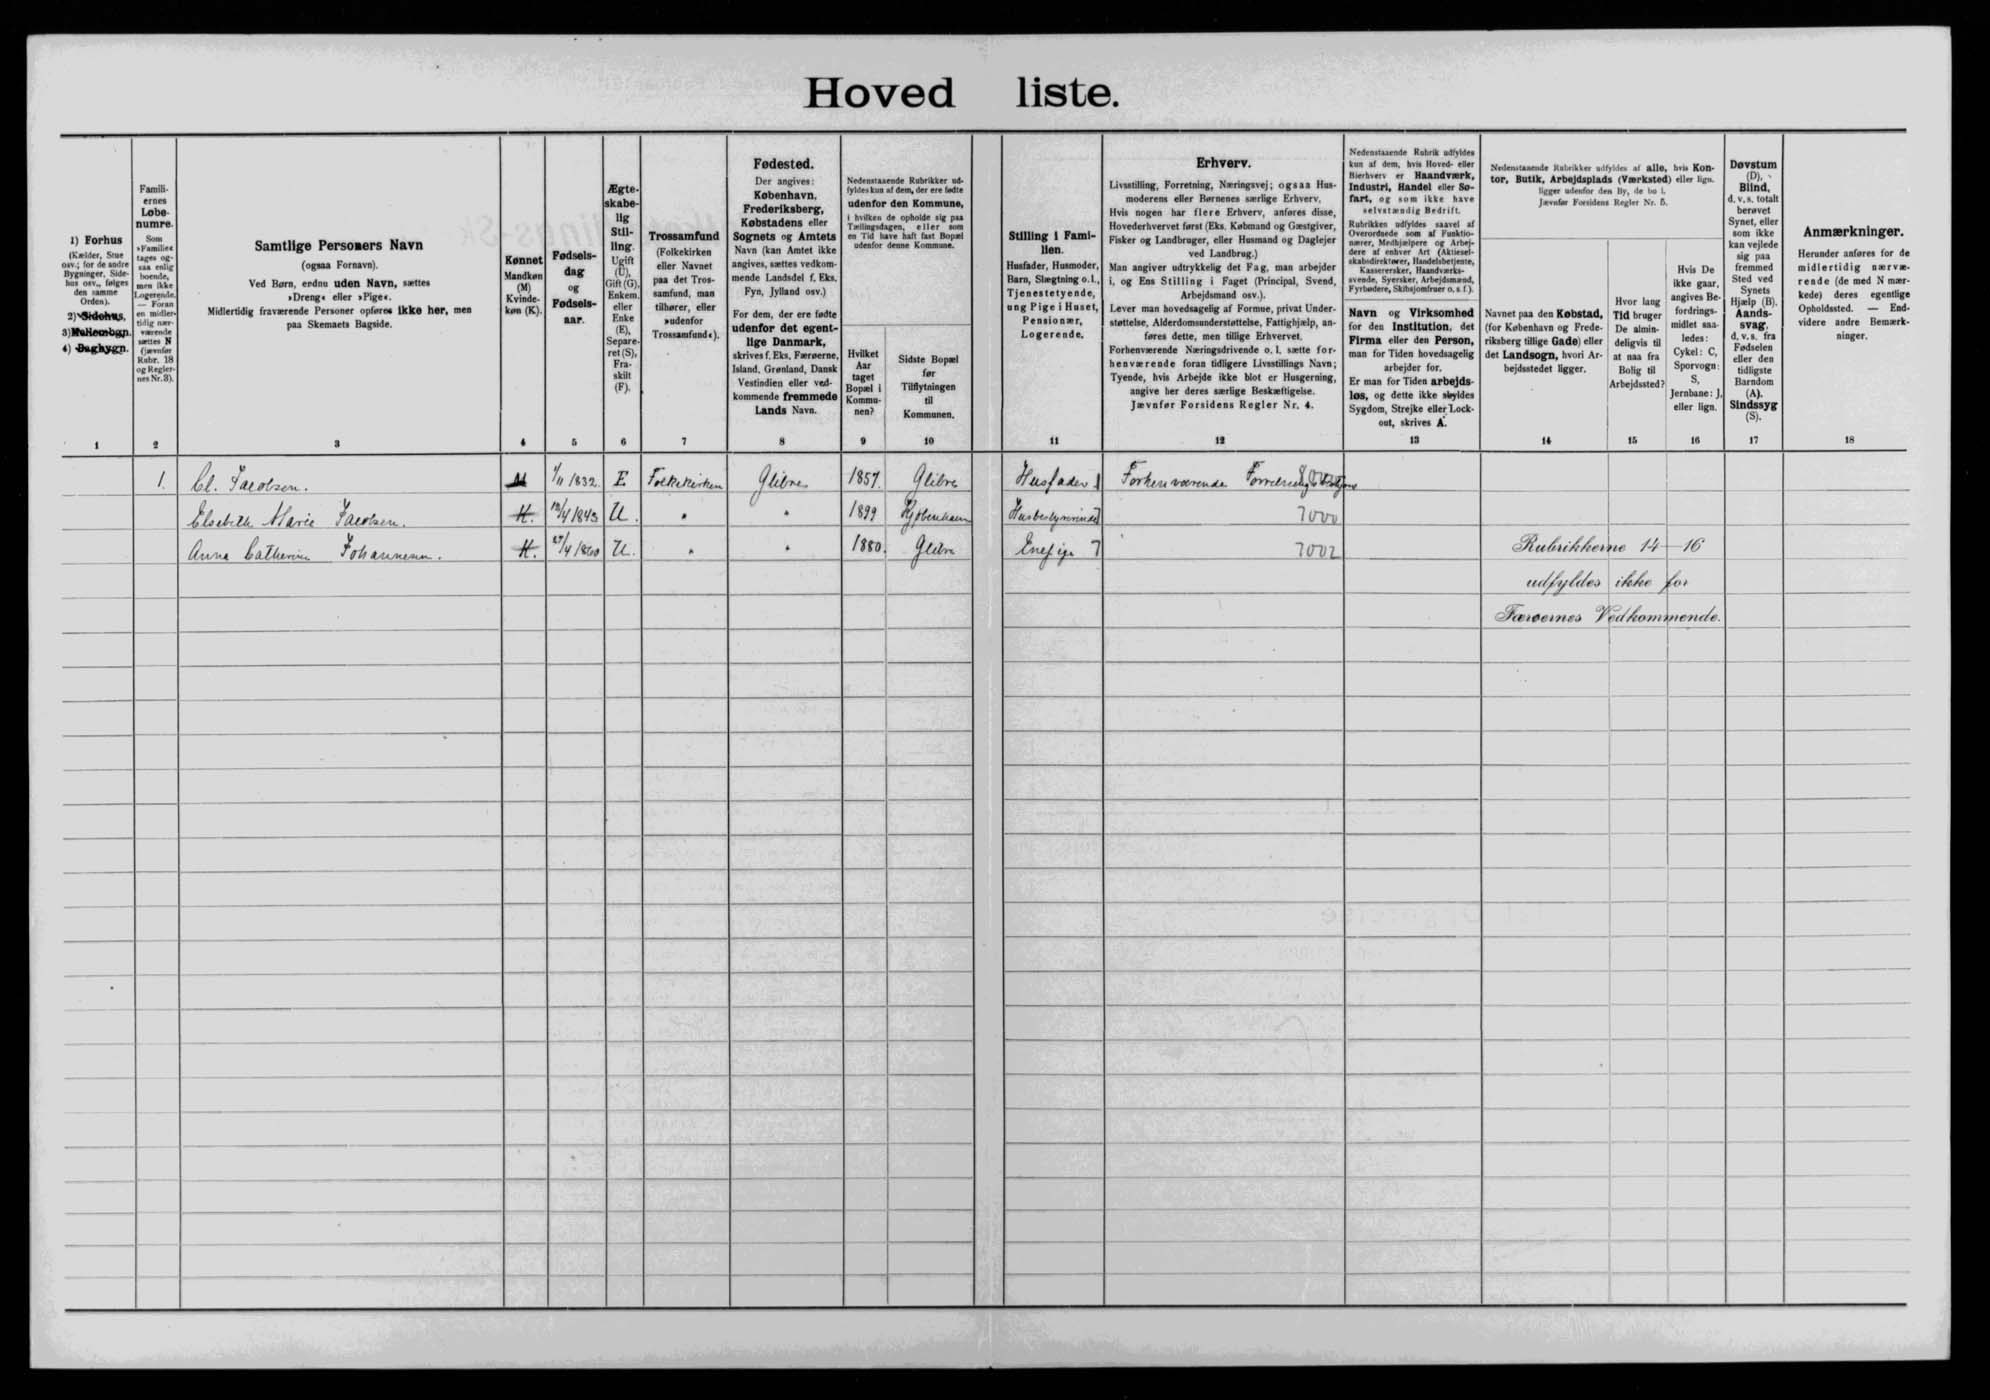 Hoved liste.
1) Forhus
(Kælder, Stue
osv.; for de andre
Bygninger, Side-
hus osv., følges
den samme
Orden).
2) Sidehus,
3) Mellembgn.
4) Bagbygn.
Famili-
ernes
Løbe-
numre.
Som
»Familie«
tages og-
saa enlig
boende,
men ikke
Logerende.
— Foran
en midler-
tidig nær-
værende
sættes N
(jævnfør
Rubr. 18
og Regler-
nes Nr. 3).
Samtlige Personers Navn
(ogsaa Fornavn).
Ved Børn, endnu uden Navn, sættes
»Dreng« eller »Pige«.
Midlertidig fraværende Personer opføres ikke her, men
paa Skemaets Bagside.
Kønnet
Mandkøn
(M)
Kvinde-
køn (K).
Fødsels-
dag
og
Fødsels-
aar.
Ægte-
skabe-
lig
Stil-
ling.
Ugift
(U),
Gift (G),
Enkem.
eller
Enke
(E),
Separe-
ret (S),
Fra-
skilt
(F).
Trossamfund
(Folkekirken
eller Navnet
paa det Tros-
samfund, man
tilhører, eller
»udenfor
Trossamfund«).
Fødested.
Der angives:
København,
Frederiksberg,
Købstadens eller
Sognets og Amtets
Navn (kan Amtet ikke
angives, sættes vedkom-
mende Landsdel f. Eks.
Fyn, Jylland osv.)
For dem, der ere fødte
udenfor det egent-
lige Danmark,
skrives f. Eks. Færøerne,
Island, Grønland, Dansk
Vestindien eller ved-
kommende fremmede
Lands Navn.
Nedenstaaende Rubrikker ud-
fyldes kun af dem, der ere fødte
udenfor den Kommune,
i hvilken de opholde sig paa
Tællingsdagen, eller som
en Tid have haft fast Bopæl
udenfor denne Kommune.
Hvilket
Aar
taget
Bopæl i
Kommu-
nen?
Sidste Bopæl
før
Tilflytningen
til
Kommunen.
Stilling i Fami-
lien.
Husfader, Husmoder,
Barn, Slægtning o.l.,
Tjenestetyende,
ung Pige i Huset,
Pensionær,
Logerende.
Erhverv.
Livsstilling, Forretning, Næringsvej; ogsaa Hus-
moderens eller Børnenes særlige Erhverv.
Hvis nogen har flere Erhverv, anføres disse,
Hovederhvervet først (Eks. Købmand og Gæstgiver,
Fisker og Landbruger, eller Husmand og Daglejer
ved Landbrug.)
Man angiver udtrykkelig det Fag, man arbejder
i, og Ens Stilling i Faget (Principal, Svend,
Arbejdsmand osv.).
Lever man hovedsagelig af Formue, privat Under-
støttelse, Alderdomsunderstøttelse, Fattighjælp, an-
føres dette, men tillige Erhvervet.
Forhenværende Næringsdrivende o. l. sætte for-
henværende foran tidligere Livsstillings Navn;
Tyende, hvis Arbejde ikke blot er Husgerning,
angive her deres særlige Beskæftigelse.
Jævnfør Forsidens Regler Nr. 4.
Nedenstaaende Rubrik udfyldes
kun af dem, hvis Hoved- eller
Bierhverv er Haandværk,
Industri, Handel eller Sø-
fart, og som ikke have
selvstændig Bedrift.
Rubrikken udfyldes saavel af
Overordnede som af Funktio-
nærer, Medhjælpere og Arbej-
dere af enhver Art (Aktiesel-
skabsdirektører, Handelsbetjente,
Kassererersker, Haandværks-
svende, Syersker, Arbejdsmænd,
Fyrbødere, Skibsjomfruer o. s. f.).
Navn og Virksomhed
for den Institution, det
Firma eller den Person,
man for Tiden hovedsagelig
arbejder for.
Er man for Tiden arbejds-
løs, og dette ikke skyldes
Sygdom, Strejke eller Lock-
out, skrives A.
Nedenstaaende Rubrikker udfyldes af alle, hvis Kon-
tor, Butik, Arbejdsplads (Værksted) eller lign.
ligger udenfor den By, de bo i.
Jævnfør Forsidens Regler Nr. 5.
Navnet paa den Købstad,
(for København og Frede-
riksberg tillige Gade) eller
det Landsogn, hvori Ar-
bejdsstedet ligger.
Hvor lang
Tid bruger
De almin-
deligvis til
at naa fra
Bolig til
Arbejdssted?
Hvis De
ikke gaar,
angives Be-
fordrings-
midlet saa-
ledes:
Cykel: C,
Sporvogn:
S,
Jernbane: J,
eller lign.
Døvstum
(D).
Blind,
d. v. s. totalt
berøvet
Synet, eller
som ikke
kan vejlede
sig paa
fremmed
Sted ved
Synets
Hjælp (B).
Aands-
svag,
d. v. s. fra
Fødselen
eller den
tidligste
Barndom
(A).
Sindssyg
(S).
Anmærkninger.
Herunder anføres for de
midlertidig nærvæ-
rende (de med N mær-
kede) deres egentlige
Opholdssted. — End-
videre andre Bemærk-
ninger.
1 2 3 4 5 6 7 8 9 10 11 12 13 14 15 16 17 18
1. Cl. Jacobsen. M 1/11 1832. E Folkekirken Glibre 1857. Glibre Husfader Forhenværende
Elsebeth Marie Jacobsen. K. 1843 U. " " 1899 Kjøbenhavn Husbestyrerinde 7000
Anna Catherine Johannesen. K. 27/4 1860 U. " " 1880. Glibre 7 7002 Rubrikkerne 14—16
udfyldes ikke for
Færøernes Vedkommende.